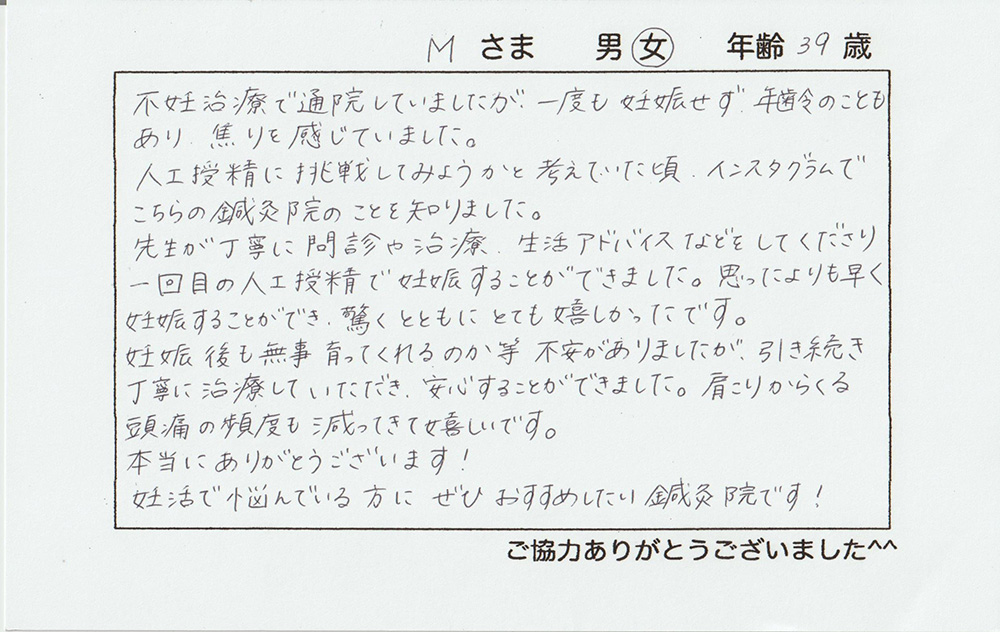 M さま 男 女 年齢 39 歳
不妊治療で通院していましたが、一度も妊娠せず、年齢のことも
あり、焦りを感じていました。
人工授精に挑戦してみようかと考えていた頃、インスタグラムで
こちらの鍼灸院のことを知りました。
先生が丁寧に問診や治療、生活アドバイスなどをしてくださり
一回目の人工授精で妊娠することができました。思ったよりも早く
妊娠することができ、驚くとともにとても嬉しかったです。
妊娠後も無事育ってくれるのか等不安がありましたが、引き続き
丁寧に治療していただき、安心することができました。肩こりからくる
頭痛の頻度も減ってきて嬉しいです。
本当にありがとうございます！
妊活で悩んでいる方にぜひおすすめしたい鍼灸院です！
ご協力ありがとうございました^^